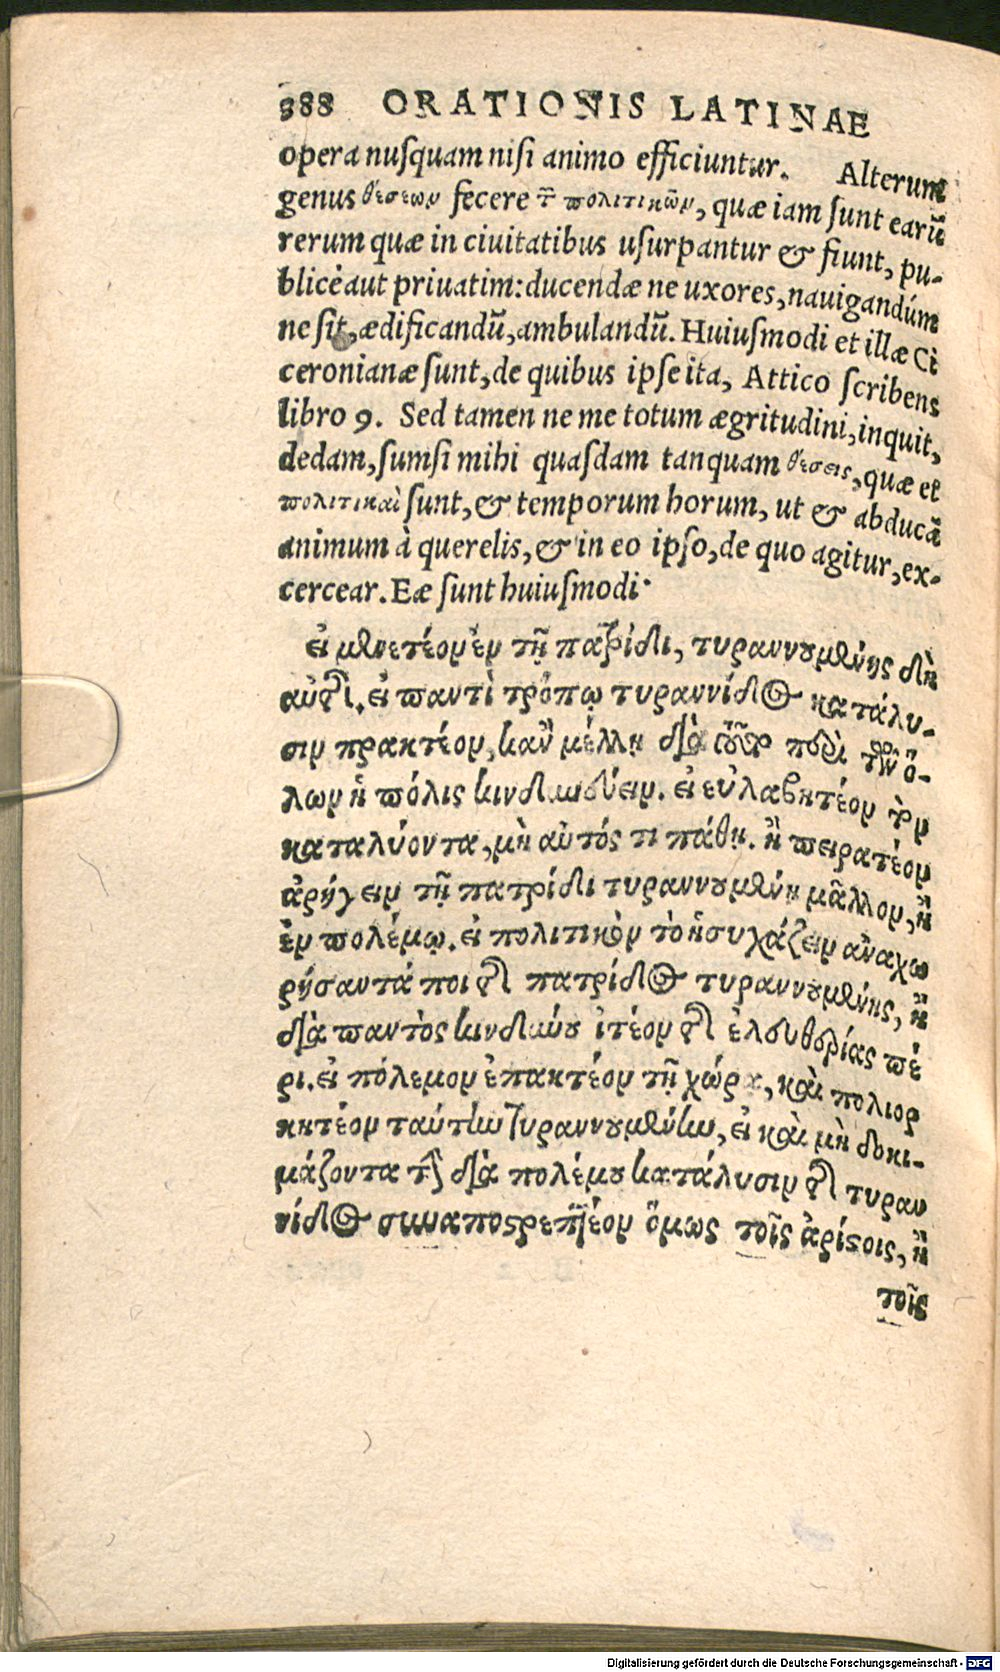 388 ORATIONIS LATINAE
opera nusquam nisi animo efficiuntur. Alterum
genus θέσεων fecere τ̃ πολιτικῶν, quæ iam sunt earũ
rerum quæ in ciuitatibus usurpantur & fiunt, pu-
blicè aut priuatim: ducendæ ne uxores, nauigandúm
ne sit, ædificandũ, ambulandũ. Huiusmodi et illæ Ci
ceronianæ sunt, de quibus ipse ita, Attico scribens
libro 9. Sed tamen ne me totum ægritudini, inquit,
dedam, sumsi mihi quasdam tanquam θέσεις, quæ et
πολιτικαὶ sunt, & temporum horum, ut & abducã
animum à querelis, & in eo ipso, de quo agitur, ex-
cercear. Eæ sunt huiusmodi.
εἰ μενετέον ἐν τῇ πατρίδι, τυραννουμένης δὲ
αὐτῆς. εἰ παντὶ τρόπῳ τυραννίδος κατάλυ-
σιν πρακτέον, κἂν μέλλῃ διὰ τοῦτο περὶ τῶν ὅ-
λων ἡ πόλις κινδυνεύειν. εἰ εὐλαβητέον τὸν
καταλύοντα, μὴ αὐτός τι πάθῃ. ἢ πειρατέον
ἀρήγειν τῇ πατρίδι τυραννουμένῃ μᾶλλον, ἢ
ἐν πολέμῳ. εἰ πολιτικὸν τὸ ἡσυχάζειν ἀναχω
ρήσαντά ποι τῆς πατρίδος τυραννουμένης, ἢ
διὰ παντὸς κινδύνου ἰτέον τῆς ἐλευθερίας πέ
ρι. εἰ πόλεμον ἐπακτέον τῇ χώρᾳ, καὶ πολιορ
κητέον ταύτην τυραννουμένην, εἰ καὶ μὴ δοκι-
μάζοντα τὴν διὰ πολέμου κατάλυσιν τῆς τυραν
νίδος συναποτρεπτέον ὅμως τοῖς ἀρίστοις, ἢ
τοῖς
Digitalisierung gefördert durch die Deutsche Forschungsgemeinschaft - DFG